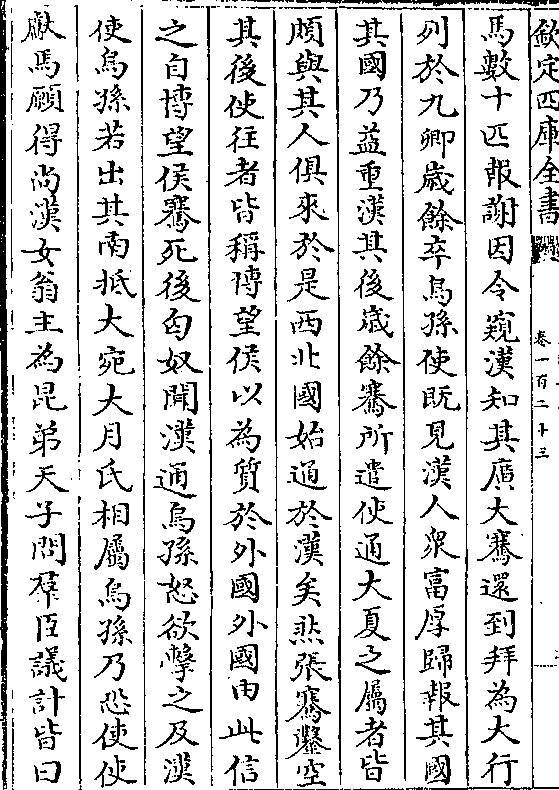 欽定四庫全書
卷一百二十三
馬數十匹報謝因令窺漢知其廣大騫還到拜為大行
列於九卿歲餘卒烏孫使既見漢人衆富厚歸報其國
其國乃益重漢其後歲餘騫所遣使通大夏之屬者皆
頗與其人俱來於是西北國始通於漢矣然張騫鑿空
其後使往者皆稱博望侯以為質於外國外國由此信
之自博望侯騫死後匈奴聞漢通烏孫怒欲擊之及漢
使烏孫若出其南抵大宛大月氏相屬烏孫乃恐使使
獻馬願得尚漢女翁主為昆弟天子問羣臣議計皆曰